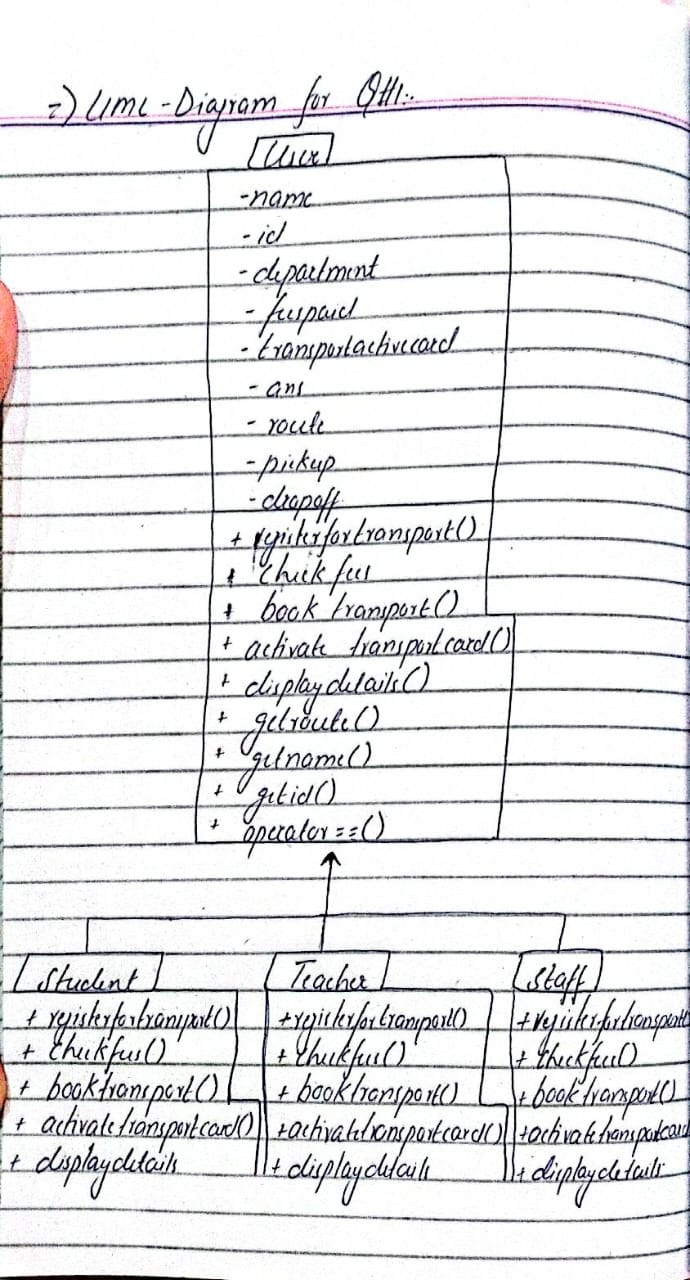 =) UML-Diagram for Q#1:.
User
-name
-id
-department
-feespaid
-transportactivecard
-ans
-route
-pickup
-dropoff
+ registerfortransport()
+ check fees
+ book transport()
+ activate transportcard()
+ displaydetails()
+ getroute()
+ getname()
+ getid()
+ operator==()
Student
+ registerfortransport()
+ checkfees()
+ booktransport()
+ activatetransportcard()
+ displaydetails
Teacher
+registerfortransport()
+ checkfee()
+ booktransport()
+activatetransportcard()
+ displaydetails
Staff
+registerfortransport
+ checkfee()
+booktransport()
+activatetransportcard
+ displaydetails